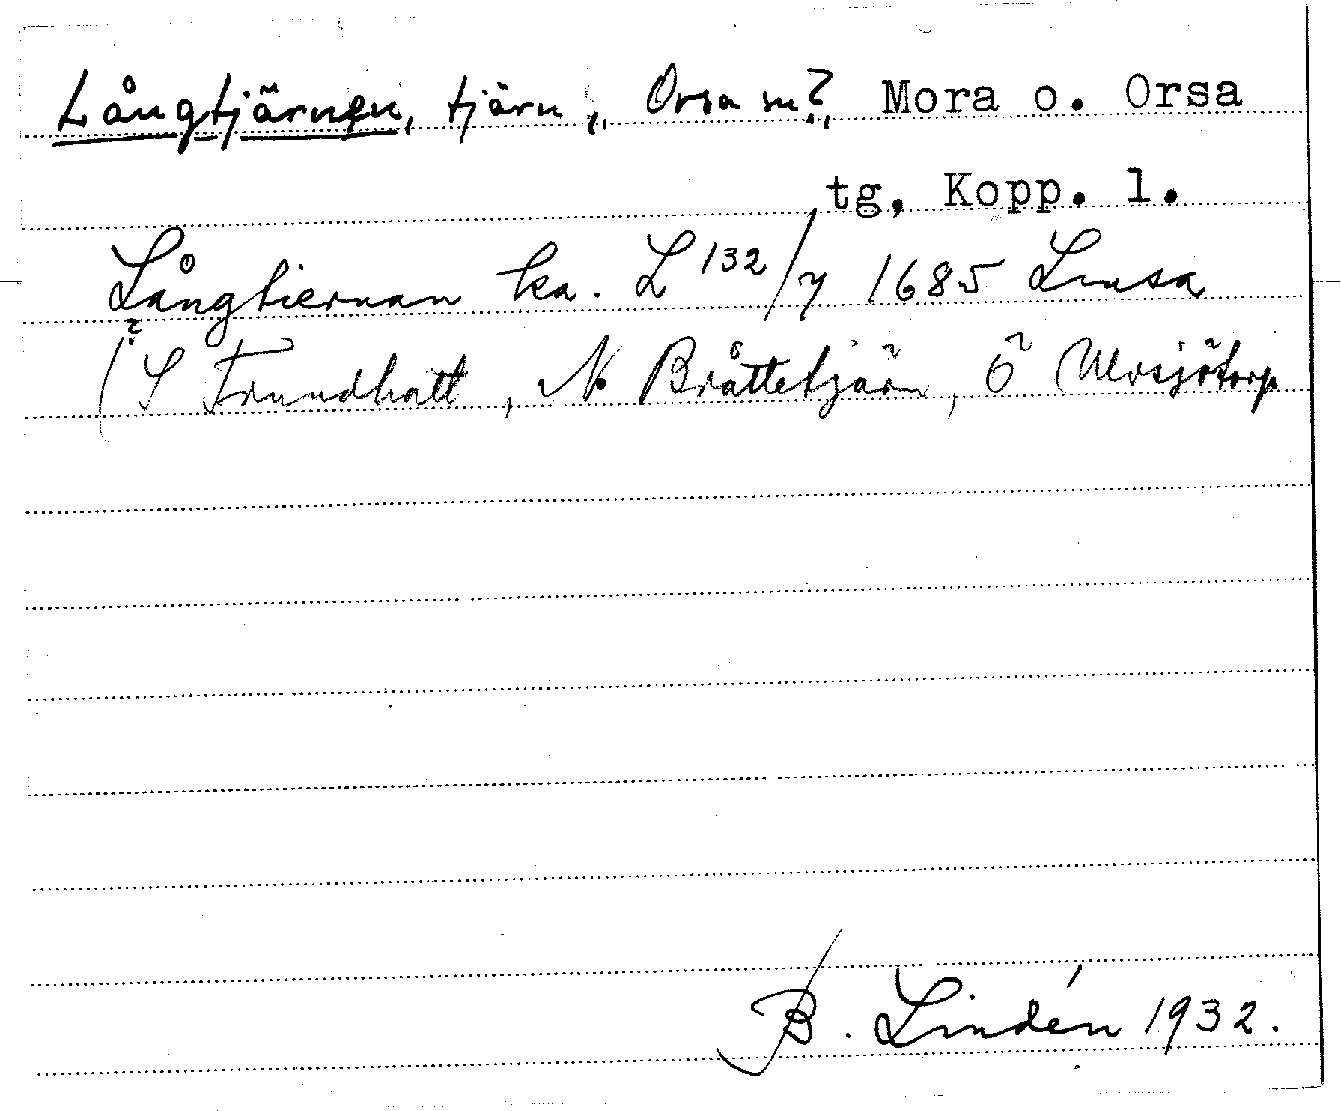 Långtjärnen, tjärn, Orsa sn?, Mora o. Orsa
tg, Kopp. l.
Långtiernan ka. L 132/7 1685 Lmsa
(S Trundhatt, N Bråttetjärn, Ö Ulvsjötorp
B. Lindén 1932.